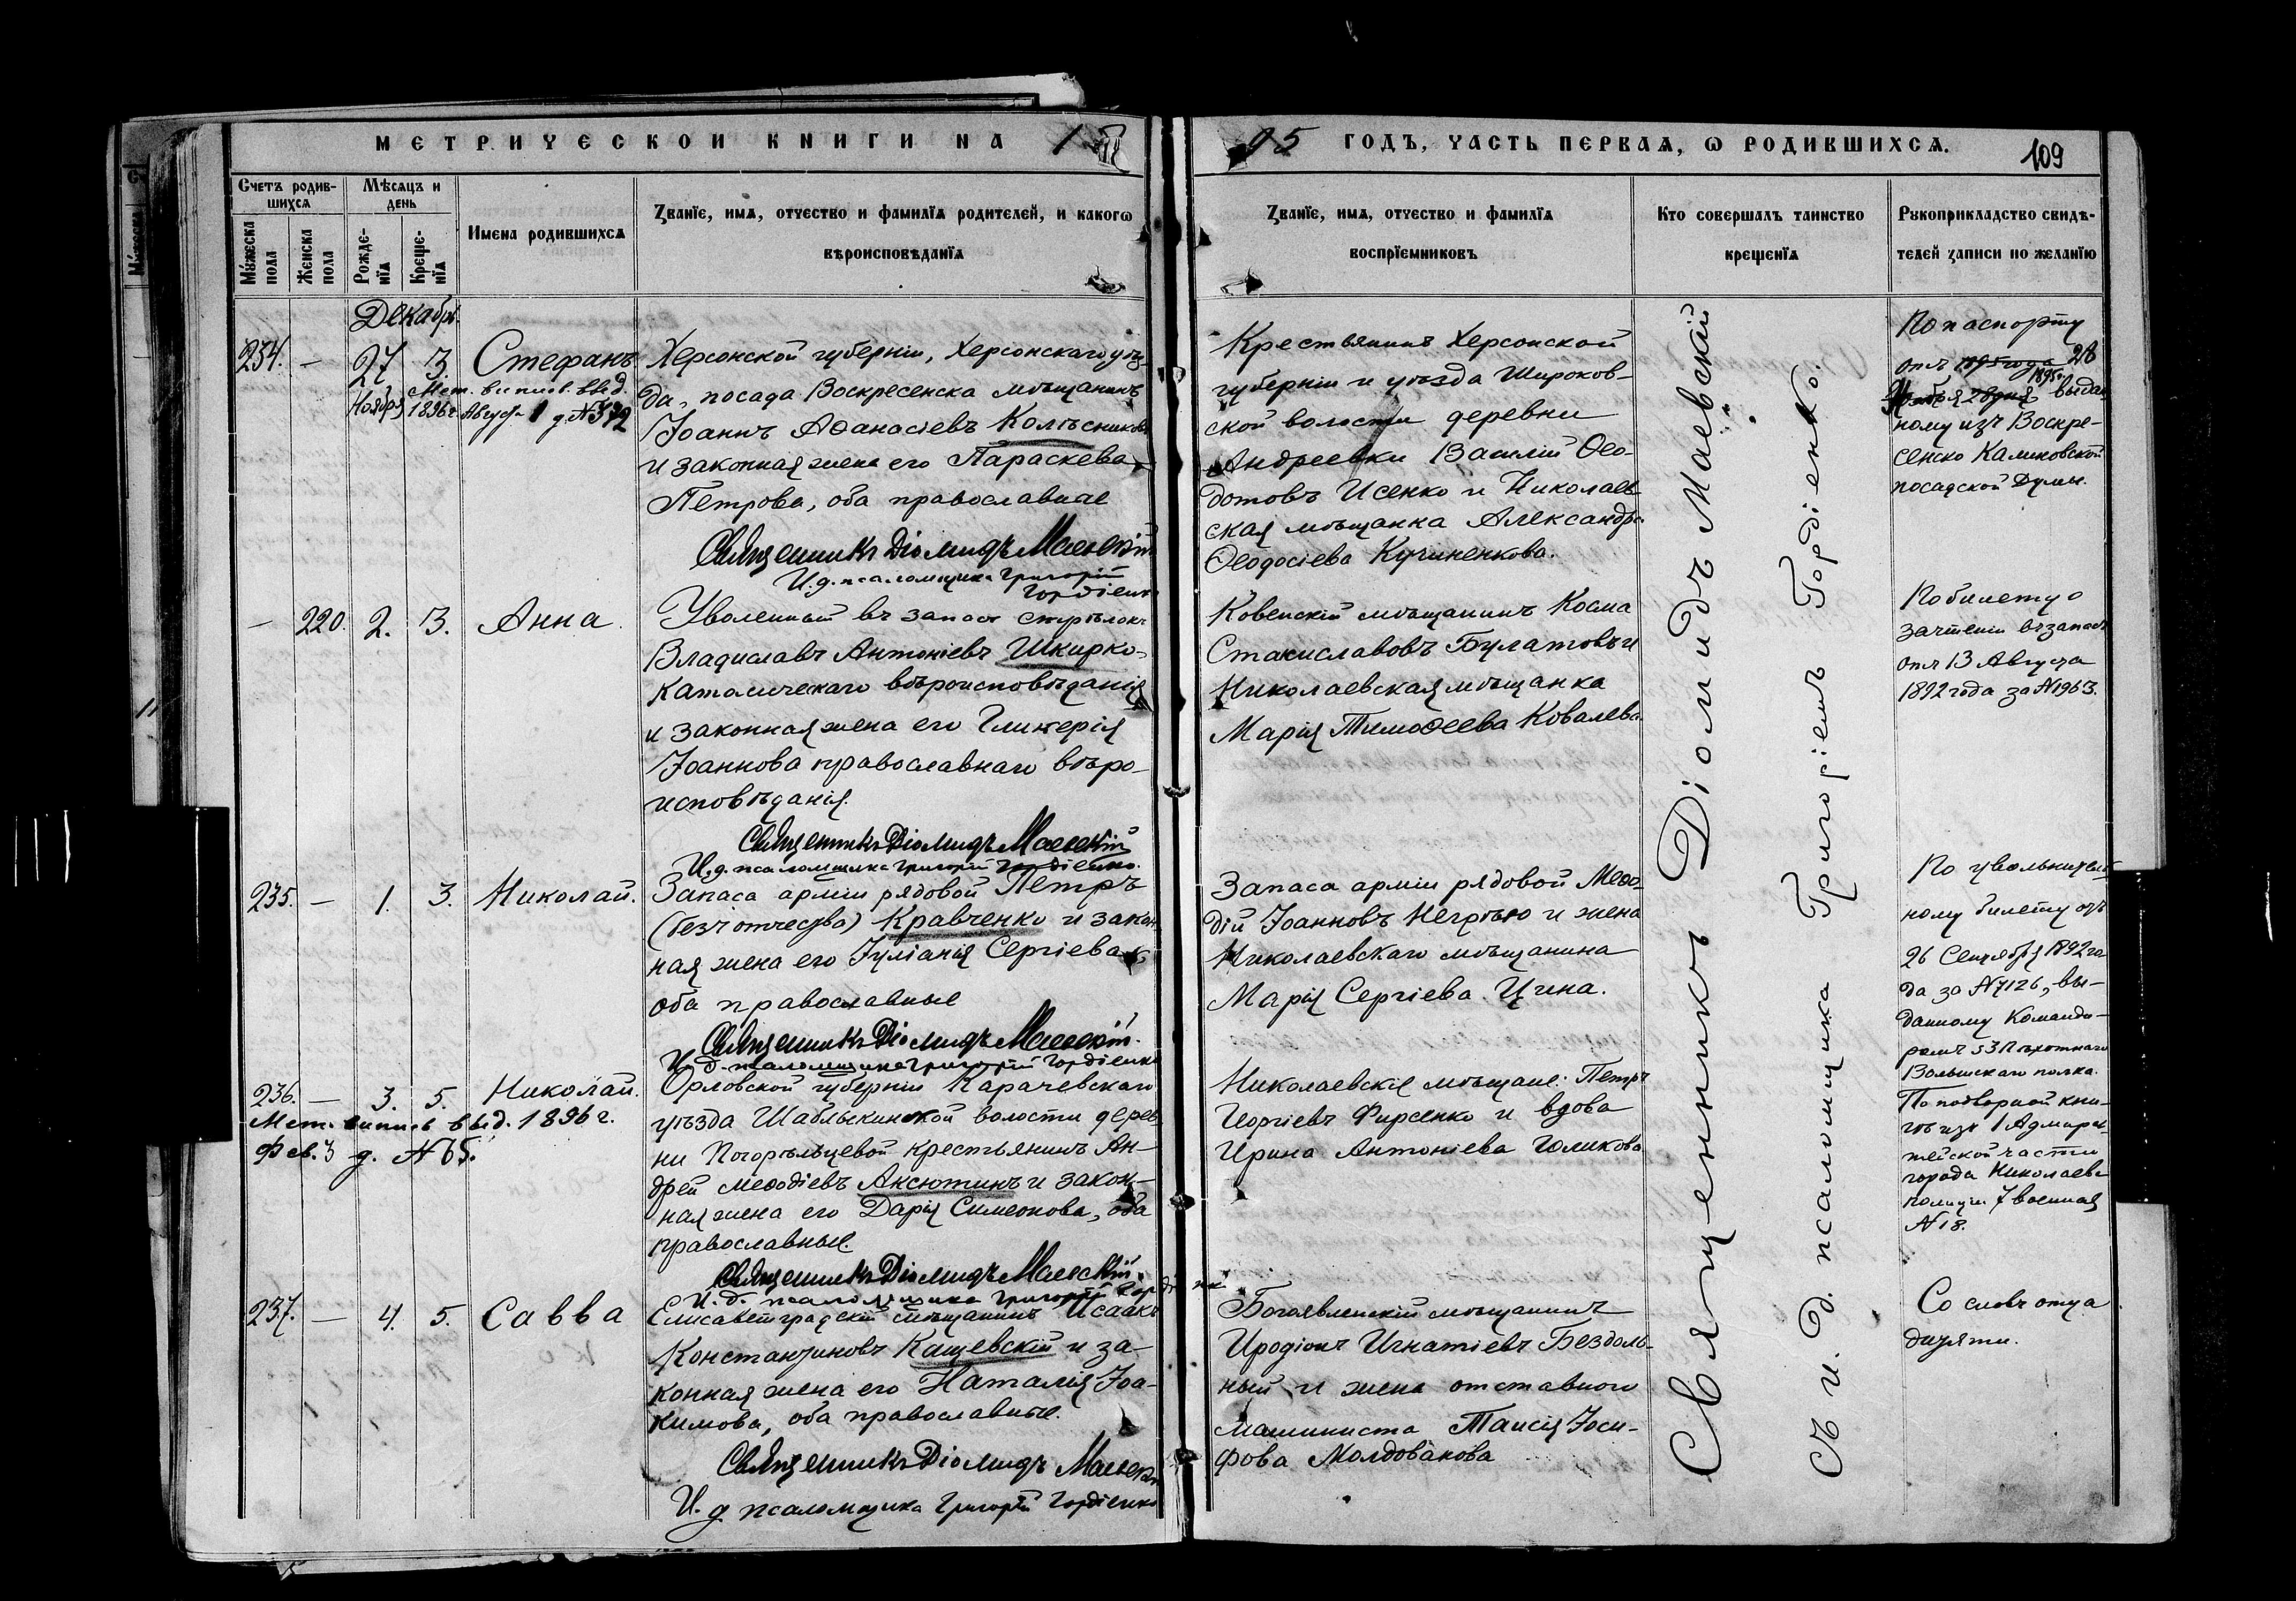 МЕТРИЧЕСКОЙ КНИГИ НА 1
95 ГОДЪ, ЧАСТЬ ПЕРВАЯ, Ѡ РОДИВШИХСЯ.
109
Счетъ родив-
шихся
Мѣсяцъ и
день
Мужеска
пола
Женска
пола
Рожде-
нїя
Креще-
нїя
Имена родившихся
Званїе, имя, отчество и фамилїя родителей, и какогѡ
вѣроисповѣданїя
Званїе, имя, отчество и фамилїя
воспрїемниковъ
Кто совершалъ таинство
крещенїя
Рукоприкладство свидѣ-
телей записи по желанїю
Декабрь.
234. — 27 3. Стефанъ
Ноября
Мет. випис. выд.
1896 г. Августа 1 д. №
Херсонской губерніи, Херсонскаго уѣз-
да, посада Воскресенска мѣщанинъ
Іоаннъ Аѳанасіевъ Колѣсниковъ
и законная жена его Параскева
Петрова, оба православные
Священникъ Діомидъ Маевскій
И. д. псаломщика Григорій
Гордіенко
Крестьянинъ Херсонской
губерніи и уѣзда Широков-
ской волости деревни
Андреевки Василій Ѳео-
дотовъ Исенко и Николаев-
ская мѣщанка Александра
Ѳеодосіева Кучиненкова.
По паспорту
отъ 1895 года 28
1895
выдан-
ному изъ Воскре-
сенско Калиновской
посадской Думы.
— 220. 2. 3. Анна.
Уволенный въ запасъ стрѣлокъ
Владиславъ Антоніевъ Шкирко
католическаго вѣроисповѣданія
и законная жена его Гликерія
Іоаннова православнаго вѣро-
исповѣданія.
Священникъ Діомидъ Маевскій
И. д. псаломщика Григорій Гордіенко.
Ковенскій мѣщанинъ Косма
Станиславовъ Булатовъ и
Николаевская мѣщанка
Марія Тимоѳеева Ковалева.
По билету о
зачтеніи въ запасъ
отъ 13 Августа
1892 года за № 1963.
235. — 1. 3. Николай.
Запаса арміи рядовой Петръ
(безъ отчества) Кравченко и закон-
ная жена его Іуліанія Сергіева
оба православные
Священникъ Діомидъ Маевскій.
И. д. псаломщика Григорій Гордіенко
Запаса арміи рядовой Меѳо-
дій Іоанновъ Негрѣю и жена
Николаевскаго мѣщанина
Марія Сергіева Цина.
По увольнитель-
ному билету отъ
26 Сентября 1892 го-
да за № 7126, вы-
данному Команди-
ромъ 53 Пѣхотнаго
Волынскаго полка.
236. — 3. 5. Николай.
Мет. випись выд. 1896 г.
Фев. 3 д. № 65.
Орловской губерніи Карачевскаго
уѣзда Шаблыкинской волости дерев-
ни Погорѣльцевой крестьянинъ Ан-
дрей Меѳодіевъ Аксютинъ и закон-
ная жена его Дарія Симеонова, оба
православные.
Священникъ Діомидъ Маевскій.
И. д. псаломщика Григорій Гордіенко
Николаевскіе мѣщане: Петръ
Георгіевъ Фирсенко и вдова
Ирина Антоніева Голикова
По подворной кни-
гѣ изъ 1 Адмирал-
тейской части
города Николаева
полиціи 7 военная
№ 18.
237. — 4. 5. Савва
Елисаветградскій мѣщанинъ Исаакъ
Константиновъ Кащевскій и за-
конная жена его Наталія Іоа-
кимова, оба православные.
Священникъ Діомидъ Маевскій
И. д. псаломщика Григорій Гордіенко
Богоявленскій мѣщанинъ
Иродіонъ Игнатіевъ Бездоль-
ный и жена отставного
машиниста Таисія Іоси-
фова Молдованова
Со словъ отца
дитяти.
Священникъ Діомидъ Маевскій
съ и. д. псаломщика Григоріемъ Гордіенко.